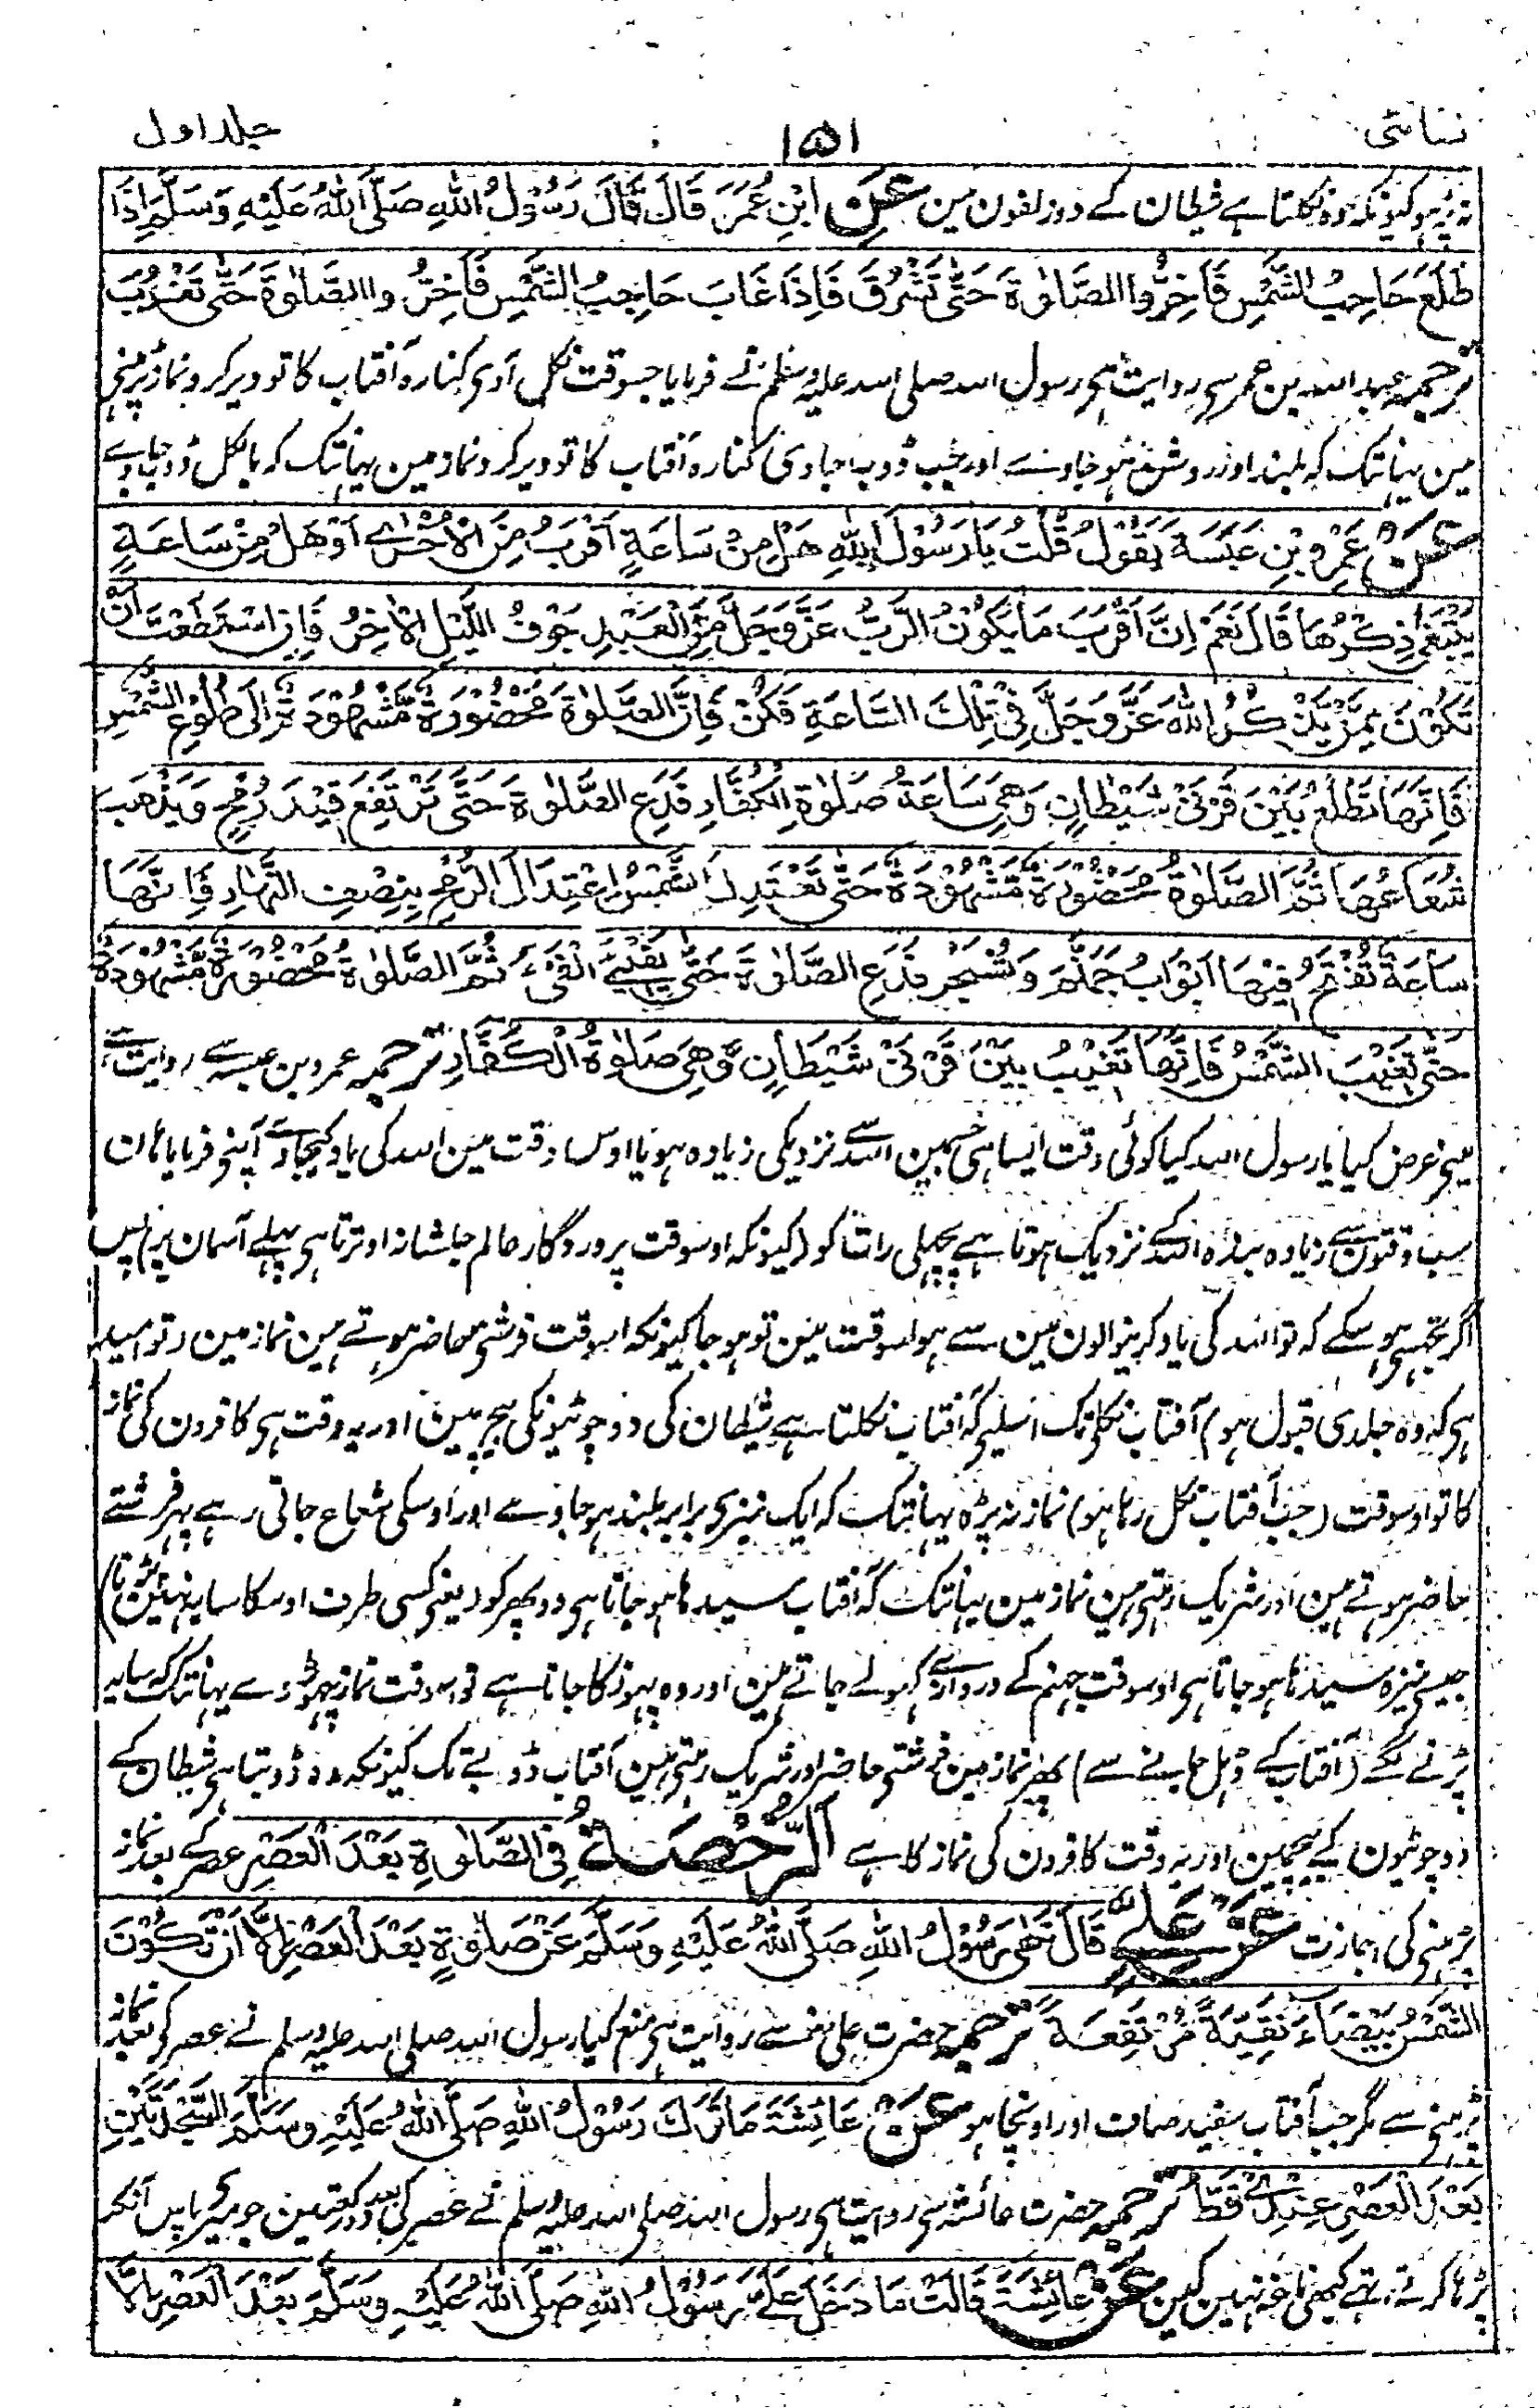 نسائی ۱۵۱ جلد اول
نہ پڑہو کیونکہ وہ نکلتا ہے شیطان کے دو زلفون مین عَنِ ابْنِ عُمَرَ قَالَ قَالَ رَسُوْلُ اللّٰهِ صَلَّى اللّٰهُ عَلَيْهِ وَسَلَّمَ اِذَا
طَلَعَ حَاجِبُ الشَّمْسِ فَاَخِّرُوا الصَّلٰوةَ حَتّٰى تَشْرُقَ فَاِذَا غَابَ حَاجِبُ الشَّمْسِ فَاَخِّرُوا الصَّلٰوةَ حَتّٰى تَغْرُبَ
ترجمہ عبد اللہ بن عمر سے روایت ہی رسول اللہ صلی اللہ علیہ وسلم نے فرمایا جسوقت نکل آوی کنارہ آفتاب کا تو دیر کرو نماز پڑہنی
مین یہانتک کہ بلند اور روشن ہو جاوے اور جب ڈوب جاوی کنارہ آفتاب کا تو دیر کرو نماز مین یہانتک کہ بالکل ڈوب جاوے
عَنْ عَمْرِو بْنِ عَبَسَةَ يَقُوْلُ قُلْتُ يَا رَسُوْلَ اللّٰهِ هَلْ مِنْ سَاعَةٍ اَقْرَبُ مِنَ الْاُخْرٰى اَوْ هَلْ مِنْ سَاعَةٍ
يُبْتَغٰى ذِكْرُهَا قَالَ نَعَمْ اِنَّ اَقْرَبَ مَا يَكُوْنُ الرَّبُّ عَزَّ وَجَلَّ مِنَ الْعَبْدِ جَوْفُ اللَّيْلِ الْاٰخِرُ فَاِنِ اسْتَطَعْتَ اَنْ
تَكُوْنَ مِمَّنْ يَذْكُرُ اللّٰهَ عَزَّ وَجَلَّ فِيْ تِلْكَ السَّاعَةِ فَكُنْ فَاِنَّ الصَّلٰوةَ مَحْضُوْرَةٌ مَّشْهُوْدَةٌ اِلٰى طُلُوْعِ الشَّمْسِ
فَاِنَّهَا تَطْلُعُ بَيْنَ قَرْنَيْ شَيْطَانٍ وَهِيَ سَاعَةُ صَلٰوةِ الْكُفَّارِ فَدَعِ الصَّلٰوةَ حَتّٰى تَرْتَفِعَ قِيْدَ رُمْحٍ وَيَذْهَبَ
شُعَاعُهَا ثُمَّ الصَّلٰوةُ مَحْضُوْرَةٌ مَّشْهُوْدَةٌ حَتّٰى تَعْتَدِلَ الشَّمْسُ اعْتِدَالَ الرُّمْحِ بِنِصْفِ النَّهَارِ فَاِنَّهَا
سَاعَةٌ تُفْتَحُ فِيْهَا اَبْوَابُ جَهَنَّمَ وَتُسْجَرُ فَدَعِ الصَّلٰوةَ حَتّٰى يَفِيْءَ الْفَيْءُ ثُمَّ الصَّلٰوةُ مَحْضُوْرَةٌ مَّشْهُوْدَةٌ
حَتّٰى تَغِيْبَ الشَّمْسُ فَاِنَّهَا تَغِيْبُ بَيْنَ قَرْنَيْ شَيْطَانٍ وَّهِيَ صَلٰوةُ الْكُفَّارِ ترجمہ عمرو بن عبسہ سے روایت ہے
مینی عرض کیا یا رسول اللہ کیا کوئی وقت ایسا ہی جسمین اللہ سے نزدیکی زیادہ ہو یا اوس وقت مین اللہ کی یاد کیجاوے آپنی فرمایا ہان
سب وقتون سے زیادہ بندہ اللہ کے نزدیک ہوتا ہے پچہلی رات کو (کیونکہ اوسوقت پروردگار عالم جلشانہ اوترتا ہی پہلے آسمان پر) پس
اگر تجہسی ہو سکے کہ تو اللہ کی یاد کرنیوالون مین سے ہو اسوقت مین تو ہو جا کیونکہ اسوقت فرشتی حاضر ہوتے ہین نماز مین (تو امید
ہی کہ وہ جلدی قبول ہو) آفتاب نکلی تک اسلیے کہ آفتاب نکلتا ہے شیطان کی دو چوٹیونکی بیچ مین اور یہ وقت ہی کافرون کی نماز
کا تو اوسوقت (جب آفتاب نکل رہا ہو) نماز نہ پڑہ یہانتک کہ ایک نیزی برابر بلند ہو جاوے اور اوسکی شعاع جاتی رہے پہر فرشتے
حاضر ہوتے ہین اور شریک رہتی ہین نماز مین یہانتک کہ آفتاب سیدہا ہو جاتا ہی دوپہر کو (یعنی کسی طرف اوسکا سایہ نہین پڑتا)
جیسی نیزہ سیدہا ہو جاتا ہی اوسوقت جہنم کے دروازے کہولے جاتے ہین اور وہ پہونکا جاتا ہے تو اسوقت نماز چہوڑ دے یہانتک کہ سایہ
پڑنے لگے (آفتاب کے ڈہل جانے سے) پھر نماز مین فرشتی حاضر اور شریک رہتی ہین آفتاب ڈوبے تک کیونکہ وہ ڈوبتا ہی شیطان کے
دو چوٹیون کے بیچ مین اور یہ وقت کافرون کی نماز کا ہے اَلرُّخْصَةُ فِي الصَّلٰوةِ بَعْدَ الْعَصْرِ عصر کے بعد نماز
پڑہنی کی اجازت عَنْ عَلِيٍّ قَالَ نَهٰى رَسُوْلُ اللّٰهِ صَلَّى اللّٰهُ عَلَيْهِ وَسَلَّمَ عَنْ صَلٰوةٍ بَعْدَ الْعَصْرِ اِلَّا اَنْ تَكُوْنَ
الشَّمْسُ بَيْضَاءَ نَقِيَّةً مُرْتَفِعَةً ترجمہ حضرت علی سے روایت ہی منع کیا رسول اللہ صلی اللہ علیہ وسلم نے عصر کے بعد نماز
پڑہنی سے مگر جب آفتاب سفید صاف اور اونچا ہو عَنْ عَائِشَةَ مَا تَرَكَ رَسُوْلُ اللّٰهِ صَلَّى اللّٰهُ عَلَيْهِ وَسَلَّمَ السَّجْدَتَيْنِ
بَعْدَ الْعَصْرِ عِنْدِيْ قَطُّ ترجمہ حضرت عائشہ سے روایت ہی رسول اللہ صلی اللہ علیہ وسلم نے عصر کی بعد دو رکعتین جو میری پاس آنکر
پڑہا کرتے تہے کبھی ناغہ نہین کین عَنْ عَائِشَةَ قَالَتْ مَا دَخَلَ عَلَيَّ رَسُوْلُ اللّٰهِ صَلَّى اللّٰهُ عَلَيْهِ وَسَلَّمَ بَعْدَ الْعَصْرِ اِلَّا